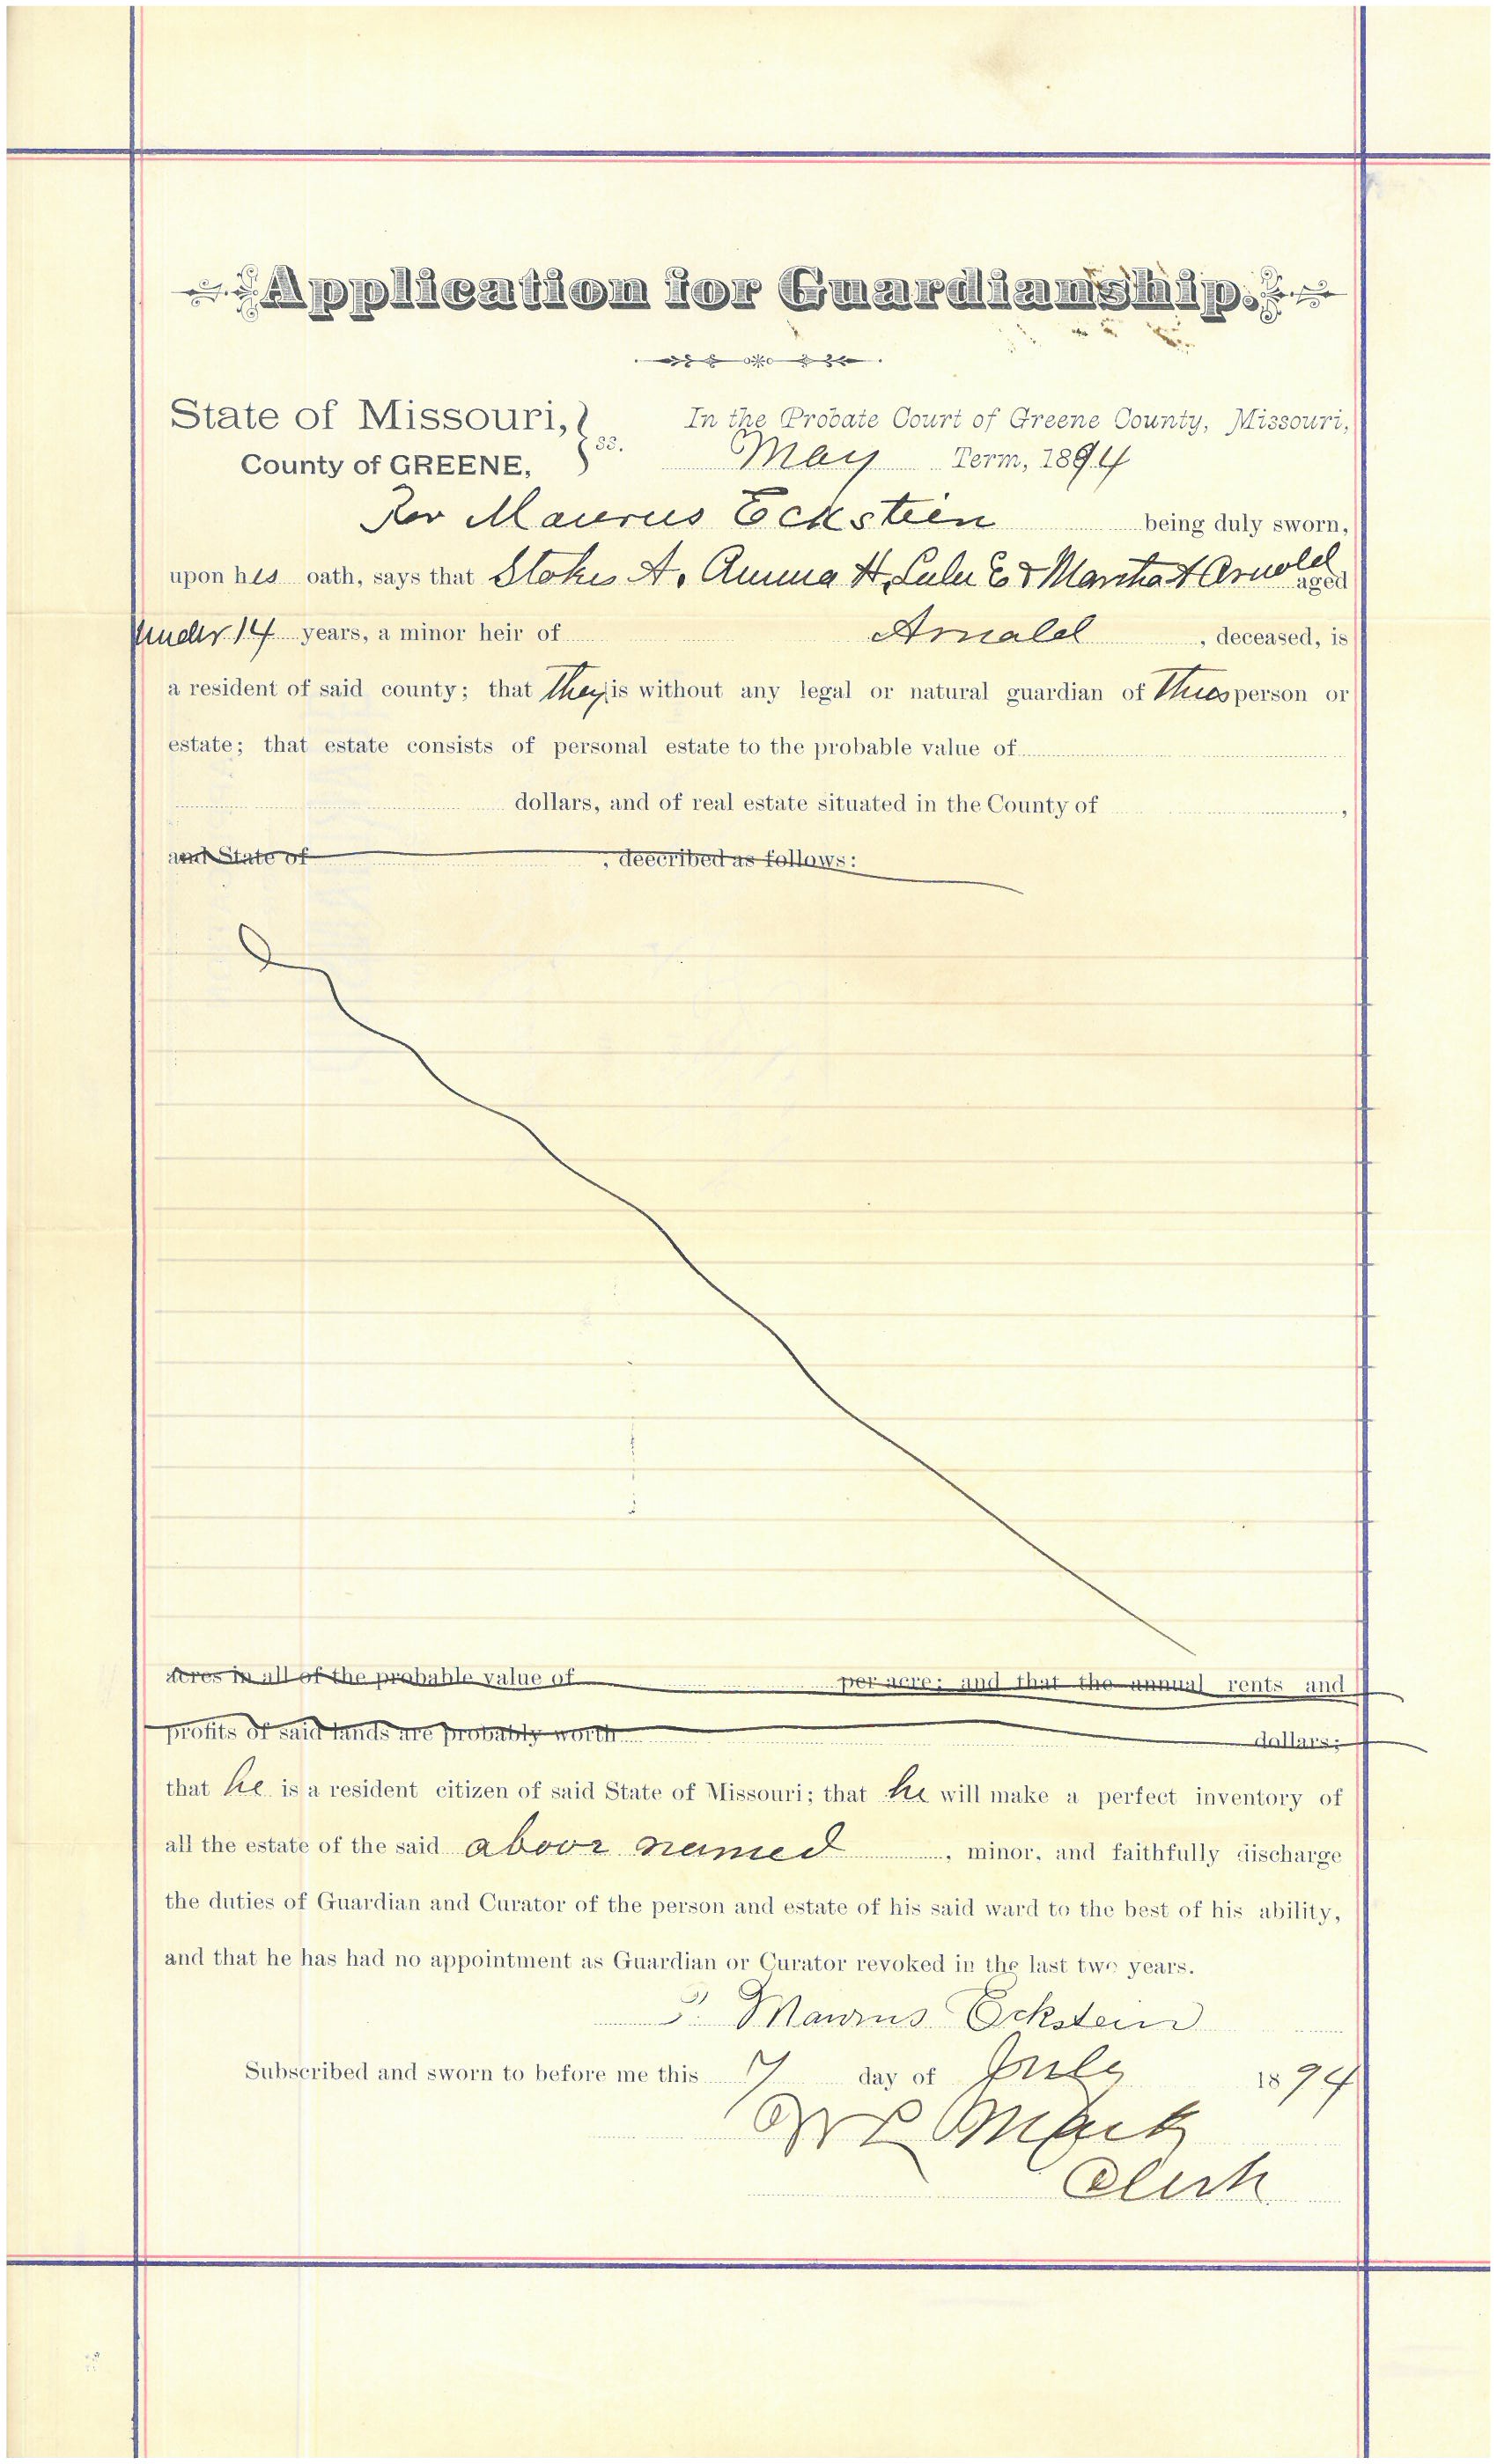 Application for Guardianship.
State of Missouri, } ss.
County of GREENE,
In the Probate Court of Greene County, Missouri,
May Term, 1894
Rev Maurus Eckstein being duly sworn,
upon his oath, says that Stokes A. Amma H, Lulu E & Martha A Arnold aged
Under 14 years, a minor heir of Arnold , deceased, is
a resident of said county; that they is without any legal or natural guardian of person or
estate; that estate consists of personal estate to the probable value of
dollars, and of real estate situated in the County of ,
and State of , deecribed as follows:
acres in all of the probable value of per acre; and that the annual rents and
profits of said lands are probably worth dollars;
that he is a resident citizen of said State of Missouri; that he will make a perfect inventory of
all the estate of the said above named , minor, and faithfully discharge
the duties of Guardian and Curator of the person and estate of his said ward to the best of his ability,
and that he has had no appointment as Guardian or Curator revoked in the last two years.
P. Maurus Eckstein
Subscribed and sworn to before me this 7 day of July 1894
Clerk